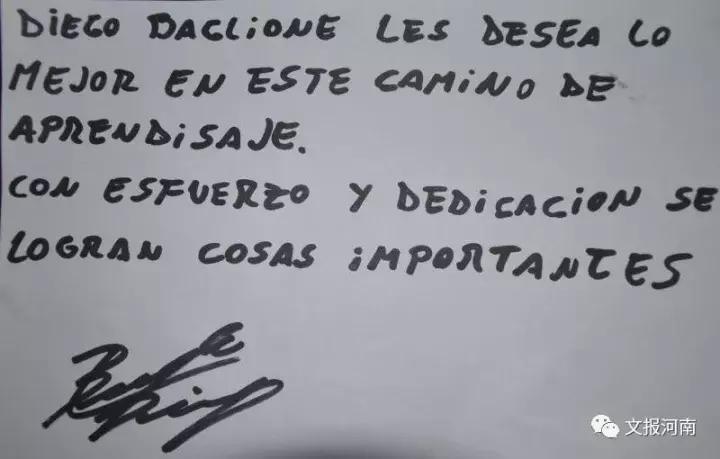 DiEGO BAGLiONE LES DESEA LO
MEJOR EN ESTE CAMiNO DE
APRENDiSAJE.
CON ESFUERZO Y DEDiCACiON SE
LOGRAN COSAS iMPORTANTES
文报河南